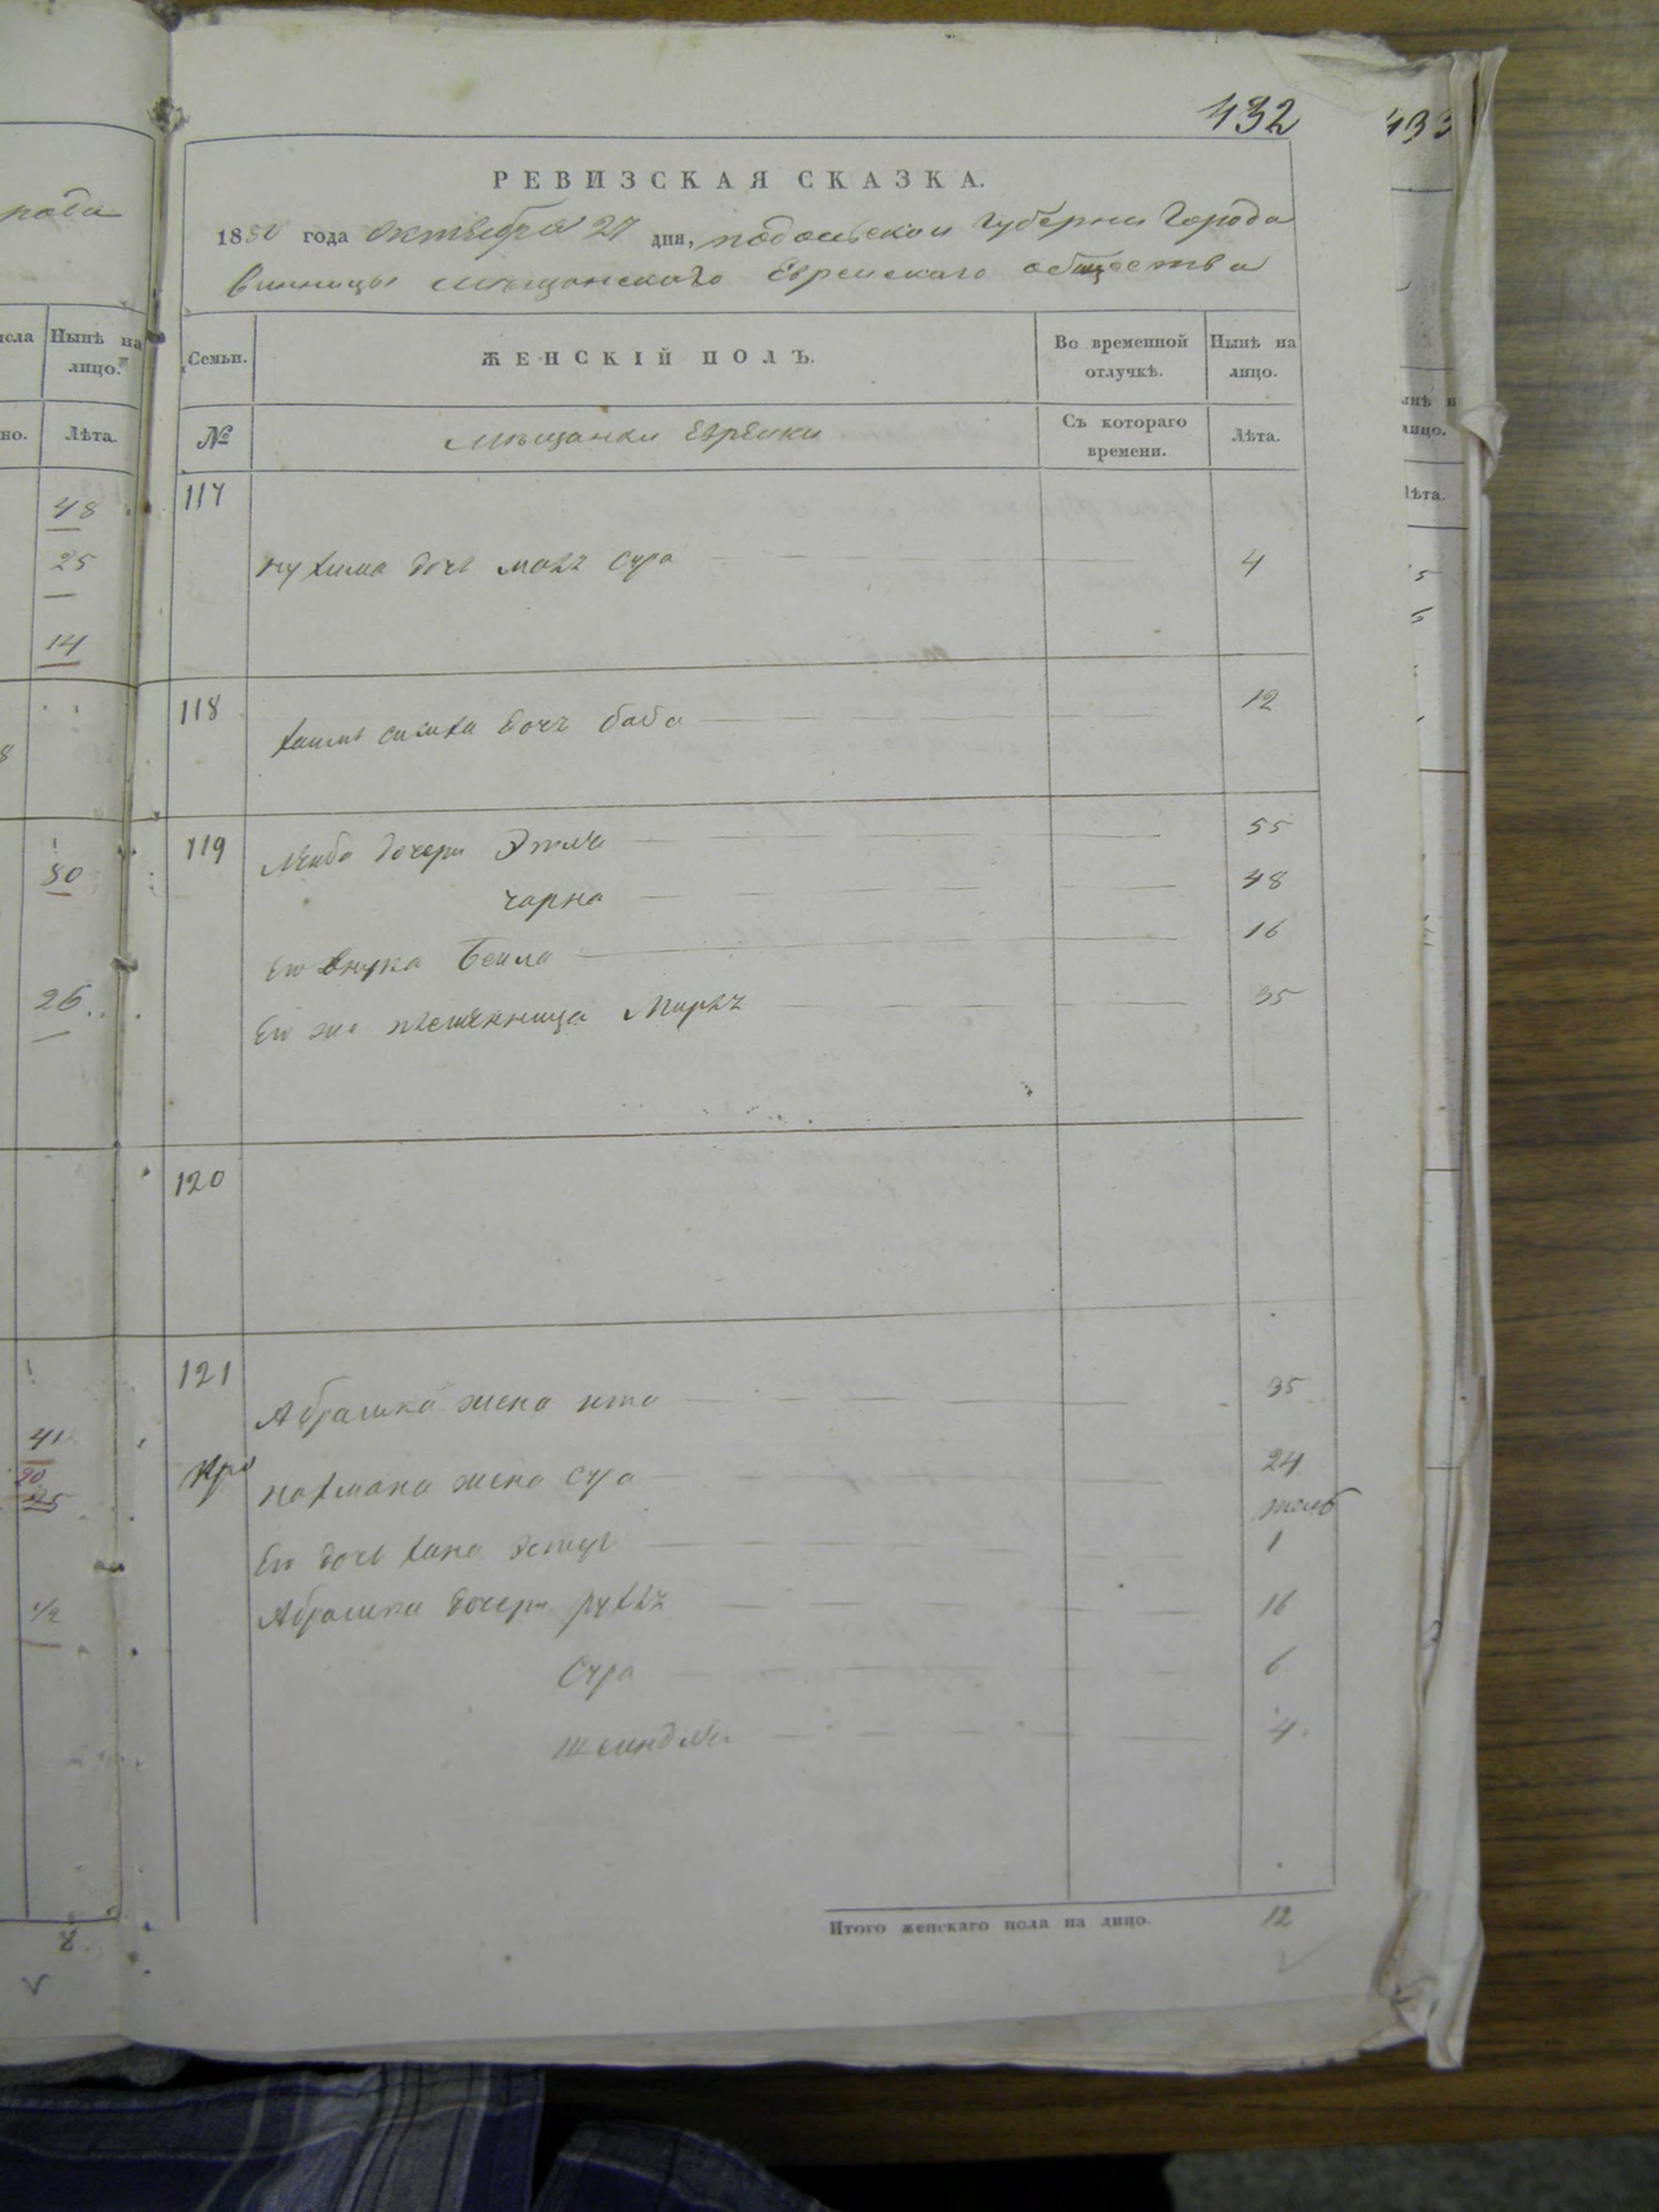 432
433
РЕВИЗСКАЯ СКАЗКА.
1850 года октября 27 дня, подольской Губернии Города
Винницы мещанскаго Еврейскаго общества
Нынѣ на лицо.
Семьи.
ЖЕНСКІЙ ПОЛЪ.
Во временной отлучкѣ.
Нынѣ на лицо.
Лѣта.
№
мещанки Еврейки
Съ котораго времени.
Лѣта.
48
25
14
80
26
41
20
25
1/2
8
117
нухима дочь Малъ Сура 4
118
хаимъ симха дочъ баба 12
119 Лейба дочери Этля 55
чарна 48
Его внука Бейла 16
Его же племенница Миркъ 35
120
121
Абрашка жена ита 35
нахмана жена Сура 24
Его дочь хана Эстер 1
Абрашки дочери рухлъ 16
Сура 6
шейндля 4
Итого женскаго пола на лицо. 12